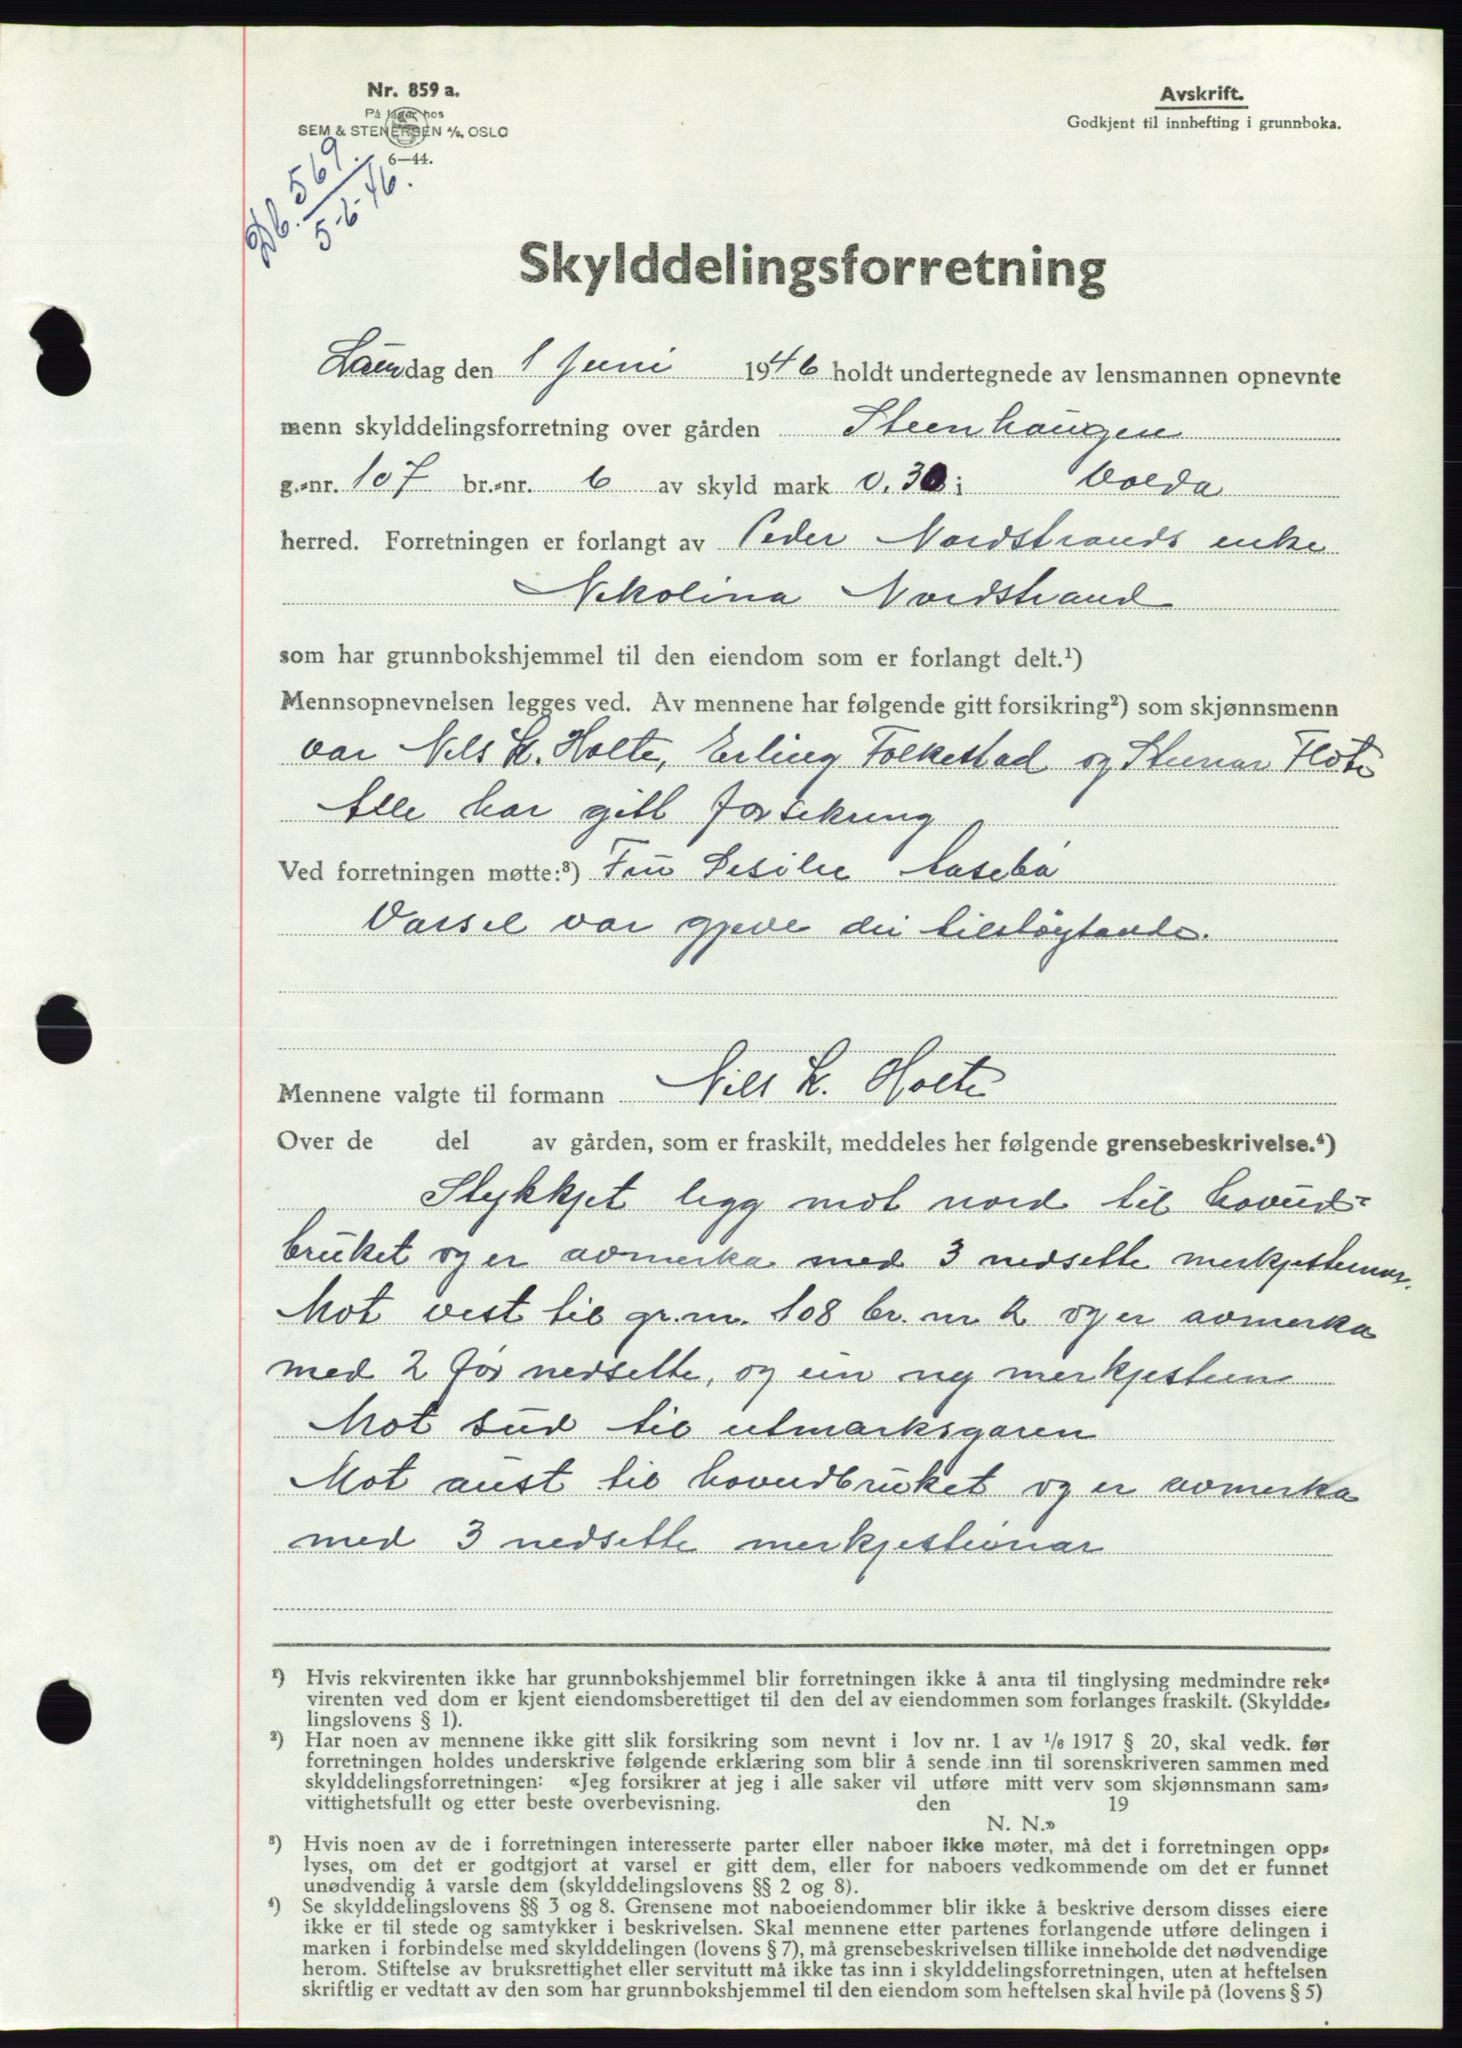 Nr. 859 a.
På lager hos
SEM & STENERSEN A/S, OSLO
6—44.
Avskrift.
Godkjent til innhefting i grunnboka.
Db. 569.
5-6-46.
Skylddelingsforretning
Laurdag den 1 Juni 1946 holdt undertegnede av lensmannen opnevnte
menn skylddelingsforretning over gården Steenhaugen
g.=nr. 107 br.=nr. 6 av skyld mark 0.30 i Volda
herred. Forretningen er forlangt av Peder Nordstrands enke
Nikolina Nordstrand
som har grunnbokshjemmel til den eiendom som er forlangt delt.¹)
Mennsopnevnelsen legges ved. Av mennene har følgende gitt forsikring²) som skjønnsmenn
var Nils K. Holte, Erling Folkestad og Steinar Fløte
Alle har gitt forsikring
Ved forretningen møtte:³) Fru Aasebø
Varsel var gjeve dei tilstøytande.
Mennene valgte til formann Nils K. Holte
Over de del av gården, som er fraskilt, meddeles her følgende grensebeskrivelse.⁴)
Stykkjet ligg mot nord til hovud=
bruket og er avmerka med 3 nedsette merkjesteinar.
Mot vest til gr.nr. 108 br. nr 2 og er avmerka
med 2 før nedsette, og ein ny merkjestein
Mot sud til utmarksgaren
Mot aust til hovudbruket og er avmerka
med 3 nedsette merkjesteinar
¹) Hvis rekvirenten ikke har grunnbokshjemmel blir forretningen ikke å anta til tinglysing medmindre rek=
virenten ved dom er kjent eiendomsberettiget til den del av eiendommen som forlanges fraskilt. (Skyldde=
lingslovens § 1).
²) Har noen av mennene ikke gitt slik forsikring som nevnt i lov nr. 1 av 1/6 1917 § 20, skal vedk. før
forretningen holdes underskrive følgende erklæring som blir å sende inn til sorenskriveren sammen med
skylddelingsforretningen: «Jeg forsikrer at jeg i alle saker vil utføre mitt verv som skjønnsmann sam=
vittighetsfullt og etter beste overbevisning. den 19
N. N.»
³) Hvis noen av de i forretningen interesserte parter eller naboer ikke møter, må det i forretningen opp=
lyses, om det er godtgjort at varsel er gitt dem, eller for naboers vedkommende om det er funnet
unødvendig å varsle dem (skylddelingslovens §§ 2 og 8).
⁴) Se skylddelingslovens §§ 3 og 8. Grensene mot naboeiendommer blir ikke å beskrive dersom disses eiere
ikke er til stede og samtykker i beskrivelsen. Skal mennene etter partenes forlangende utføre delingen i
marken i forbindelse med skylddelingen (lovens § 7), må grensebeskrivelsen tillike inneholde det nødvendige
herom. Stiftelse av bruksrettighet eller servitutt må ikke tas inn i skylddelingsforretningen, uten at heftelsen
skriftlig er vedtatt av den som har grunnbokshjemmel til den eiendom som heftelsen skal hvile på (lovens § 5)